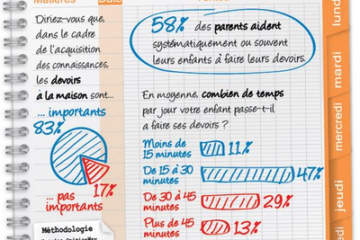 Matières
Diriez-vous que,
dans le cadre
de l'acquisition
des connaissances,
les devoirs
à la maison sont...
... importants
83%
17%
... pas
importants
Méthodologie
58% des parents aident
systématiquement ou souvent
leurs enfants à faire leurs devoirs.
En moyenne, combien de temps
par jour votre enfant passe-t-il
à faire ses devoirs ?
Moins de
15 minutes
11%
De 15 à 30
minutes
47%
De 30 à 45
minutes
29%
Plus de 45
minutes
13%
lundi
mardi
mercredi
jeudi